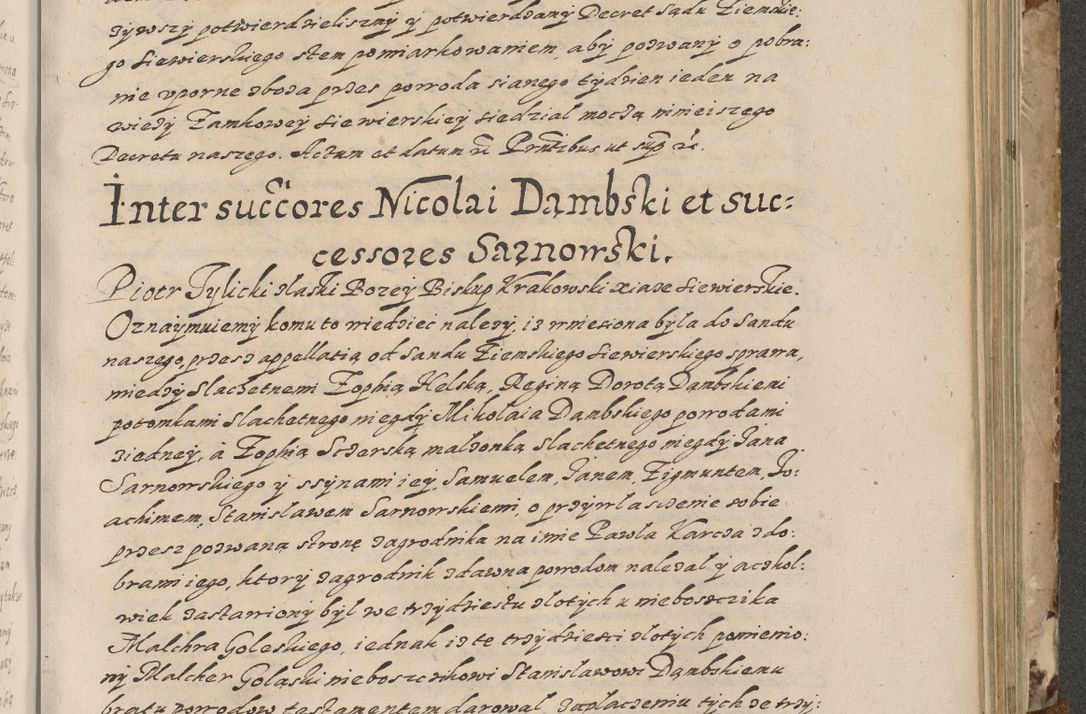 żywszy potwierdzieliszmy y potwierdzamy Decret Sądu Ziemskie:
go Siewierskiego stem pomiarkowaniem, aby pozwany o pobra:
nie vporne zboża przes powoda sianego tydzien ieden na
wieży Zamkowey Siewierskiey siedział mocżą ninieiszego
Decretu naszego. Actum et datum rc Prntibus ut sup rc.
Inter succores Nicolai Dąmbski et suc:
cessores Sarnowski.
Piotr Tylicki złaski Bozey Biskup Krakowski xiąże Siewierskie.
Oznaymuiemy komu to wiedzieć należy, iż wniesiona była do Sandu
naszego, przesz appellatią od Sandu Ziemskiego Siewierskiego sprawa,
miedzy Slachetnemi Zophią Kelską, Reginą Dorotą Dąmbskiemi
potomkami Slachetnego niegdy Mikołaia Dambskiego powodami
ziedney, à Zophią Sczerską małżonką Slachetnego niegdy Jana
Sarnowskiego y ssynami iey, Samuelem, Janem, Zigmuntem, Jo:
achimem, Stanisławem Sarnowskiemi, o przywłasczenie sobie
przesz pozwaną stronę zagrodnika na imie Pawla Karcża zdo:
brami iego, ktory zagrodnik zdawna powodom należał y aczkol:
wiek zastawiony był we trzydziestu złotych u nieboszczika
Malchra Goleskiego, iednak iż te trzydzieści złotych pomienio:
ny Malcher Golaski nieboszczikowi Stanisławowi Dąmbskiemu
bratu powodow testamentem darował zapłaczeniu tych że trzy: